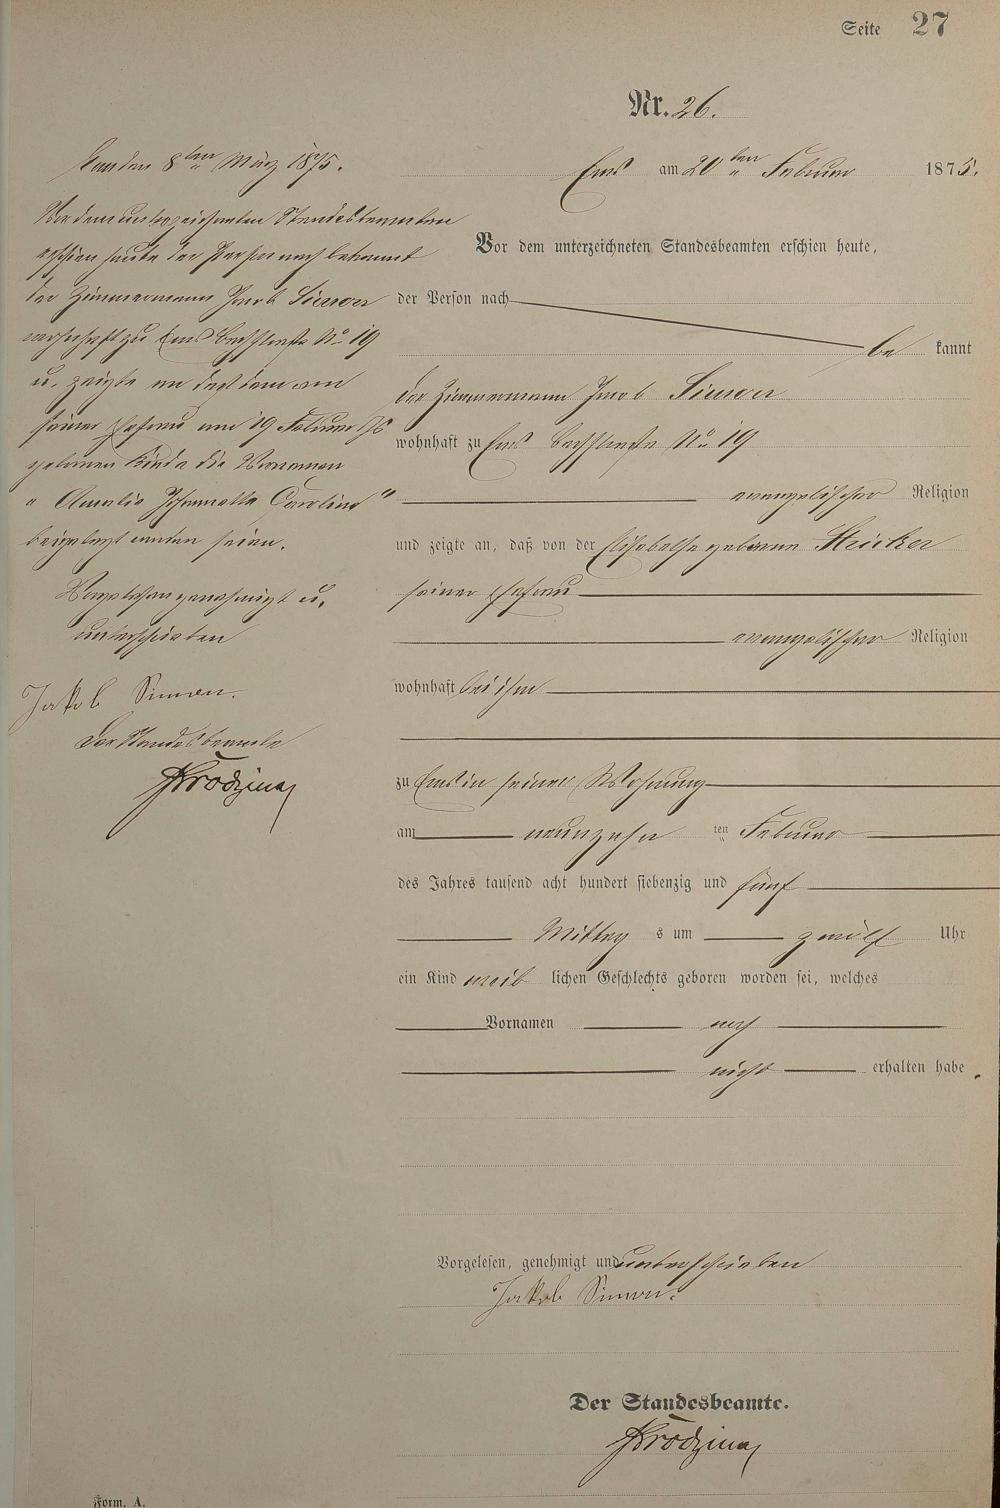 Seite 27
Nr. 26.
Ems am 20ten Februar 1875.
Vor dem unterzeichneten Standesbeamten erschien heute,
der Person nach
be kannt
der Zimmermann Jacob Simon
wohnhaft zu Ems Bachstraße No 19
evangelischer Religion
und zeigte an, daß von der Elisabethe geborene Stricker
seiner Ehefrau
evangelischer Religion
wohnhaft bei ihm
zu Ems in seiner Wohnung
am neunzehn ten Februar
des Jahres tausend acht hundert siebenzig und fünf
Mittag s um zwölf Uhr
ein Kind weib lichen Geschlechts geboren worden sei, welches
Vornamen noch
nicht erhalten habe.
Vorgelesen, genehmigt und unterschrieben
Jakob Simon.
Der Standesbeamte.
Form. A.
den 8ten März 1875.
Vor dem unterzeichneten Standesbeamten
erschien heute der Person nach bekannt
der Zimmermann Jacob Simon
wohnhaft zu Ems Bachstraße No 19
u. zeigte an daß dem von
seiner Ehefrau am 19 Februar Js
geborenen Kinde die Vornamen
"Amalie Johannette Caroline"
beigelegt worden seien.
Vorgelesen genehmigt u.
unterschrieben
Jakob Simon.
Der Standesbeamte